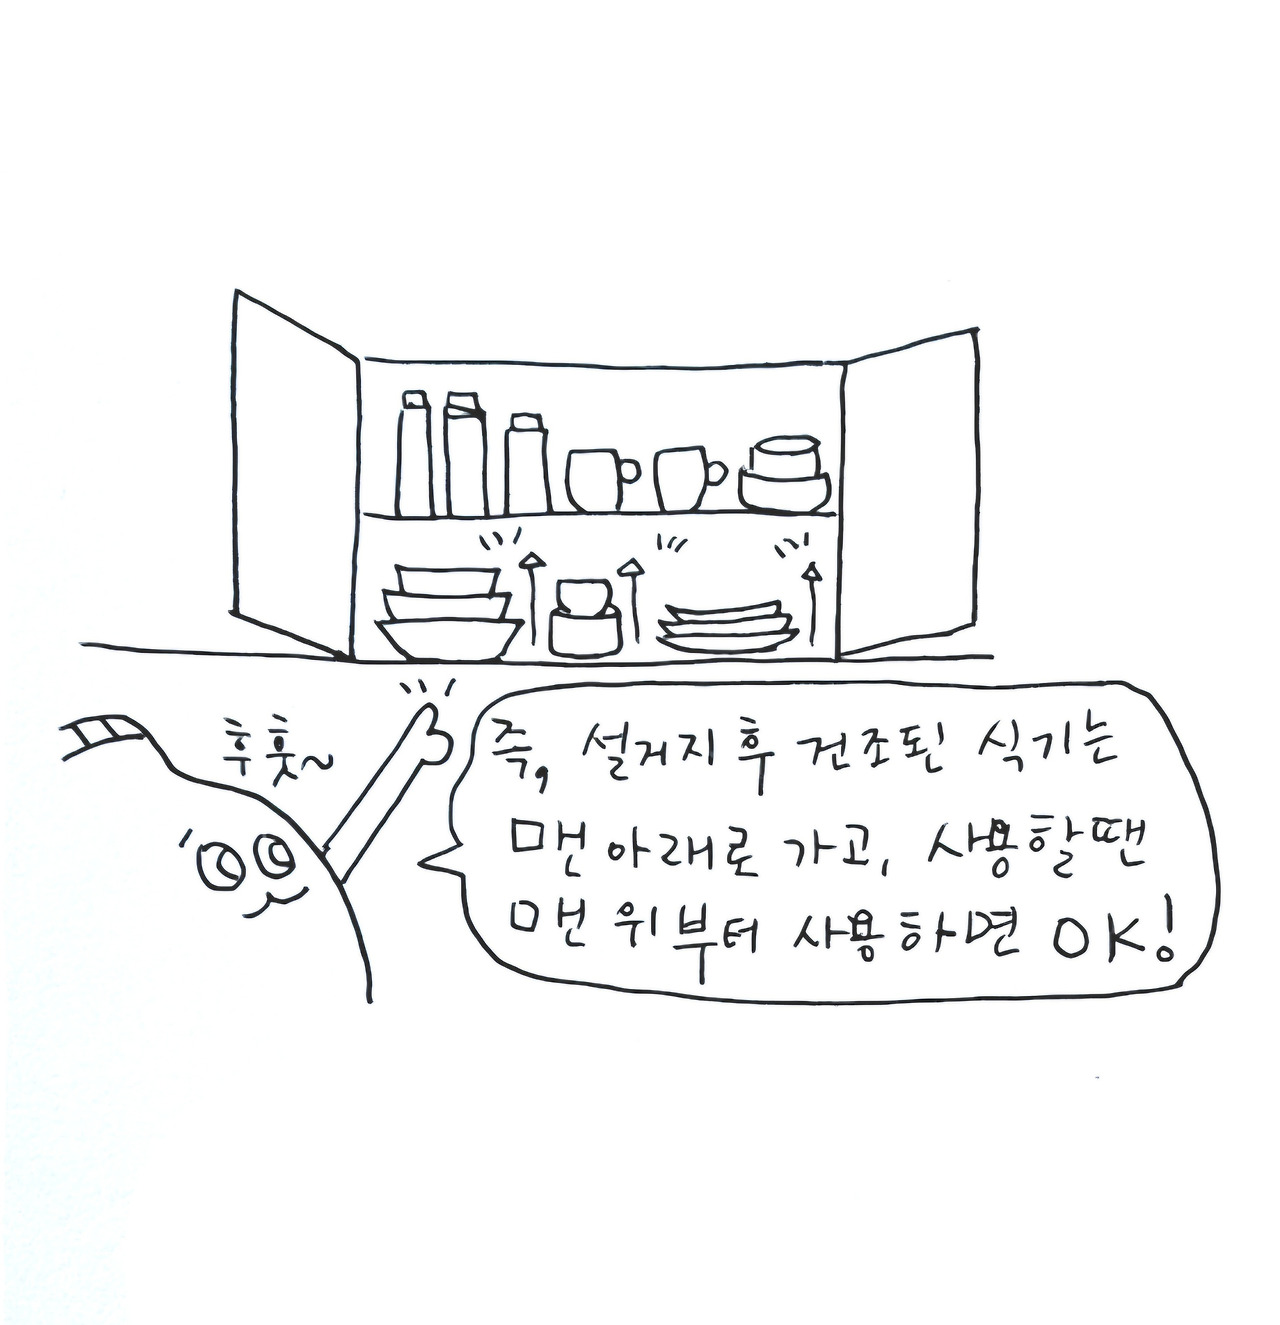 후훗~
즉, 설거지 후 건조된 식기는
맨 아래로 가고, 사용할땐
맨 위부터 사용하면 OK!